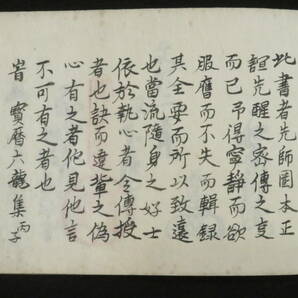 此書者先師国本正
誼先醒之密傳之支
而已予得寧静而欲
服膺而不失而輯録
其全要而所以致遠
也當流随身之好士
依於執心者令傳授
者也訣而遠輩之偽
心有之者他見他言
不可有之者也
旹 寶曆六龍集丙子